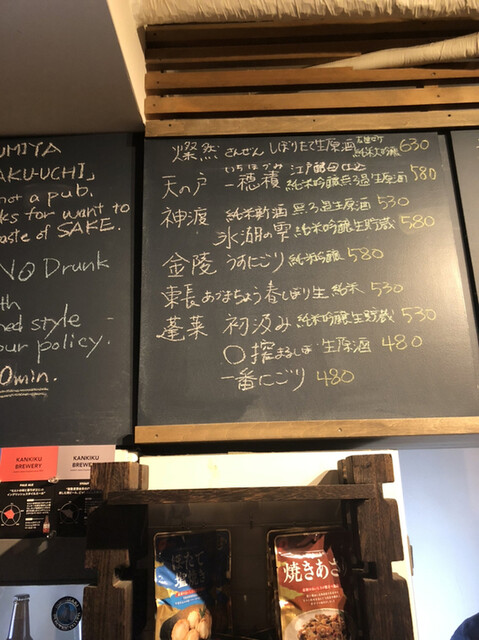 UMIYA
AKU-UCHI」
not a pub.
ks for want to
aste of SAKE.
No Drunk
th
ned style
our policy.
0min.
燦然 さんぜん しぼりたて生原酒 雄町 純米大吟醸 630
天の戸 いちほづみ 一穂積 純米吟醸無ろ過生原酒 580
神渡 純米新酒 無ろ過生原酒 530
氷湖の雫 純米吟醸生貯蔵 580
金陵 うすにごり 純米吟醸 580
東長 あづまちょう 春しぼり生 純米 530
蓬莱 初汲み 純米吟醸生貯蔵 530
〇搾 まるしぼ 生原酒 480
一番にごり 480
KANKIKU
BREWERY
KANKIKU
BREWERY
焼きあさ